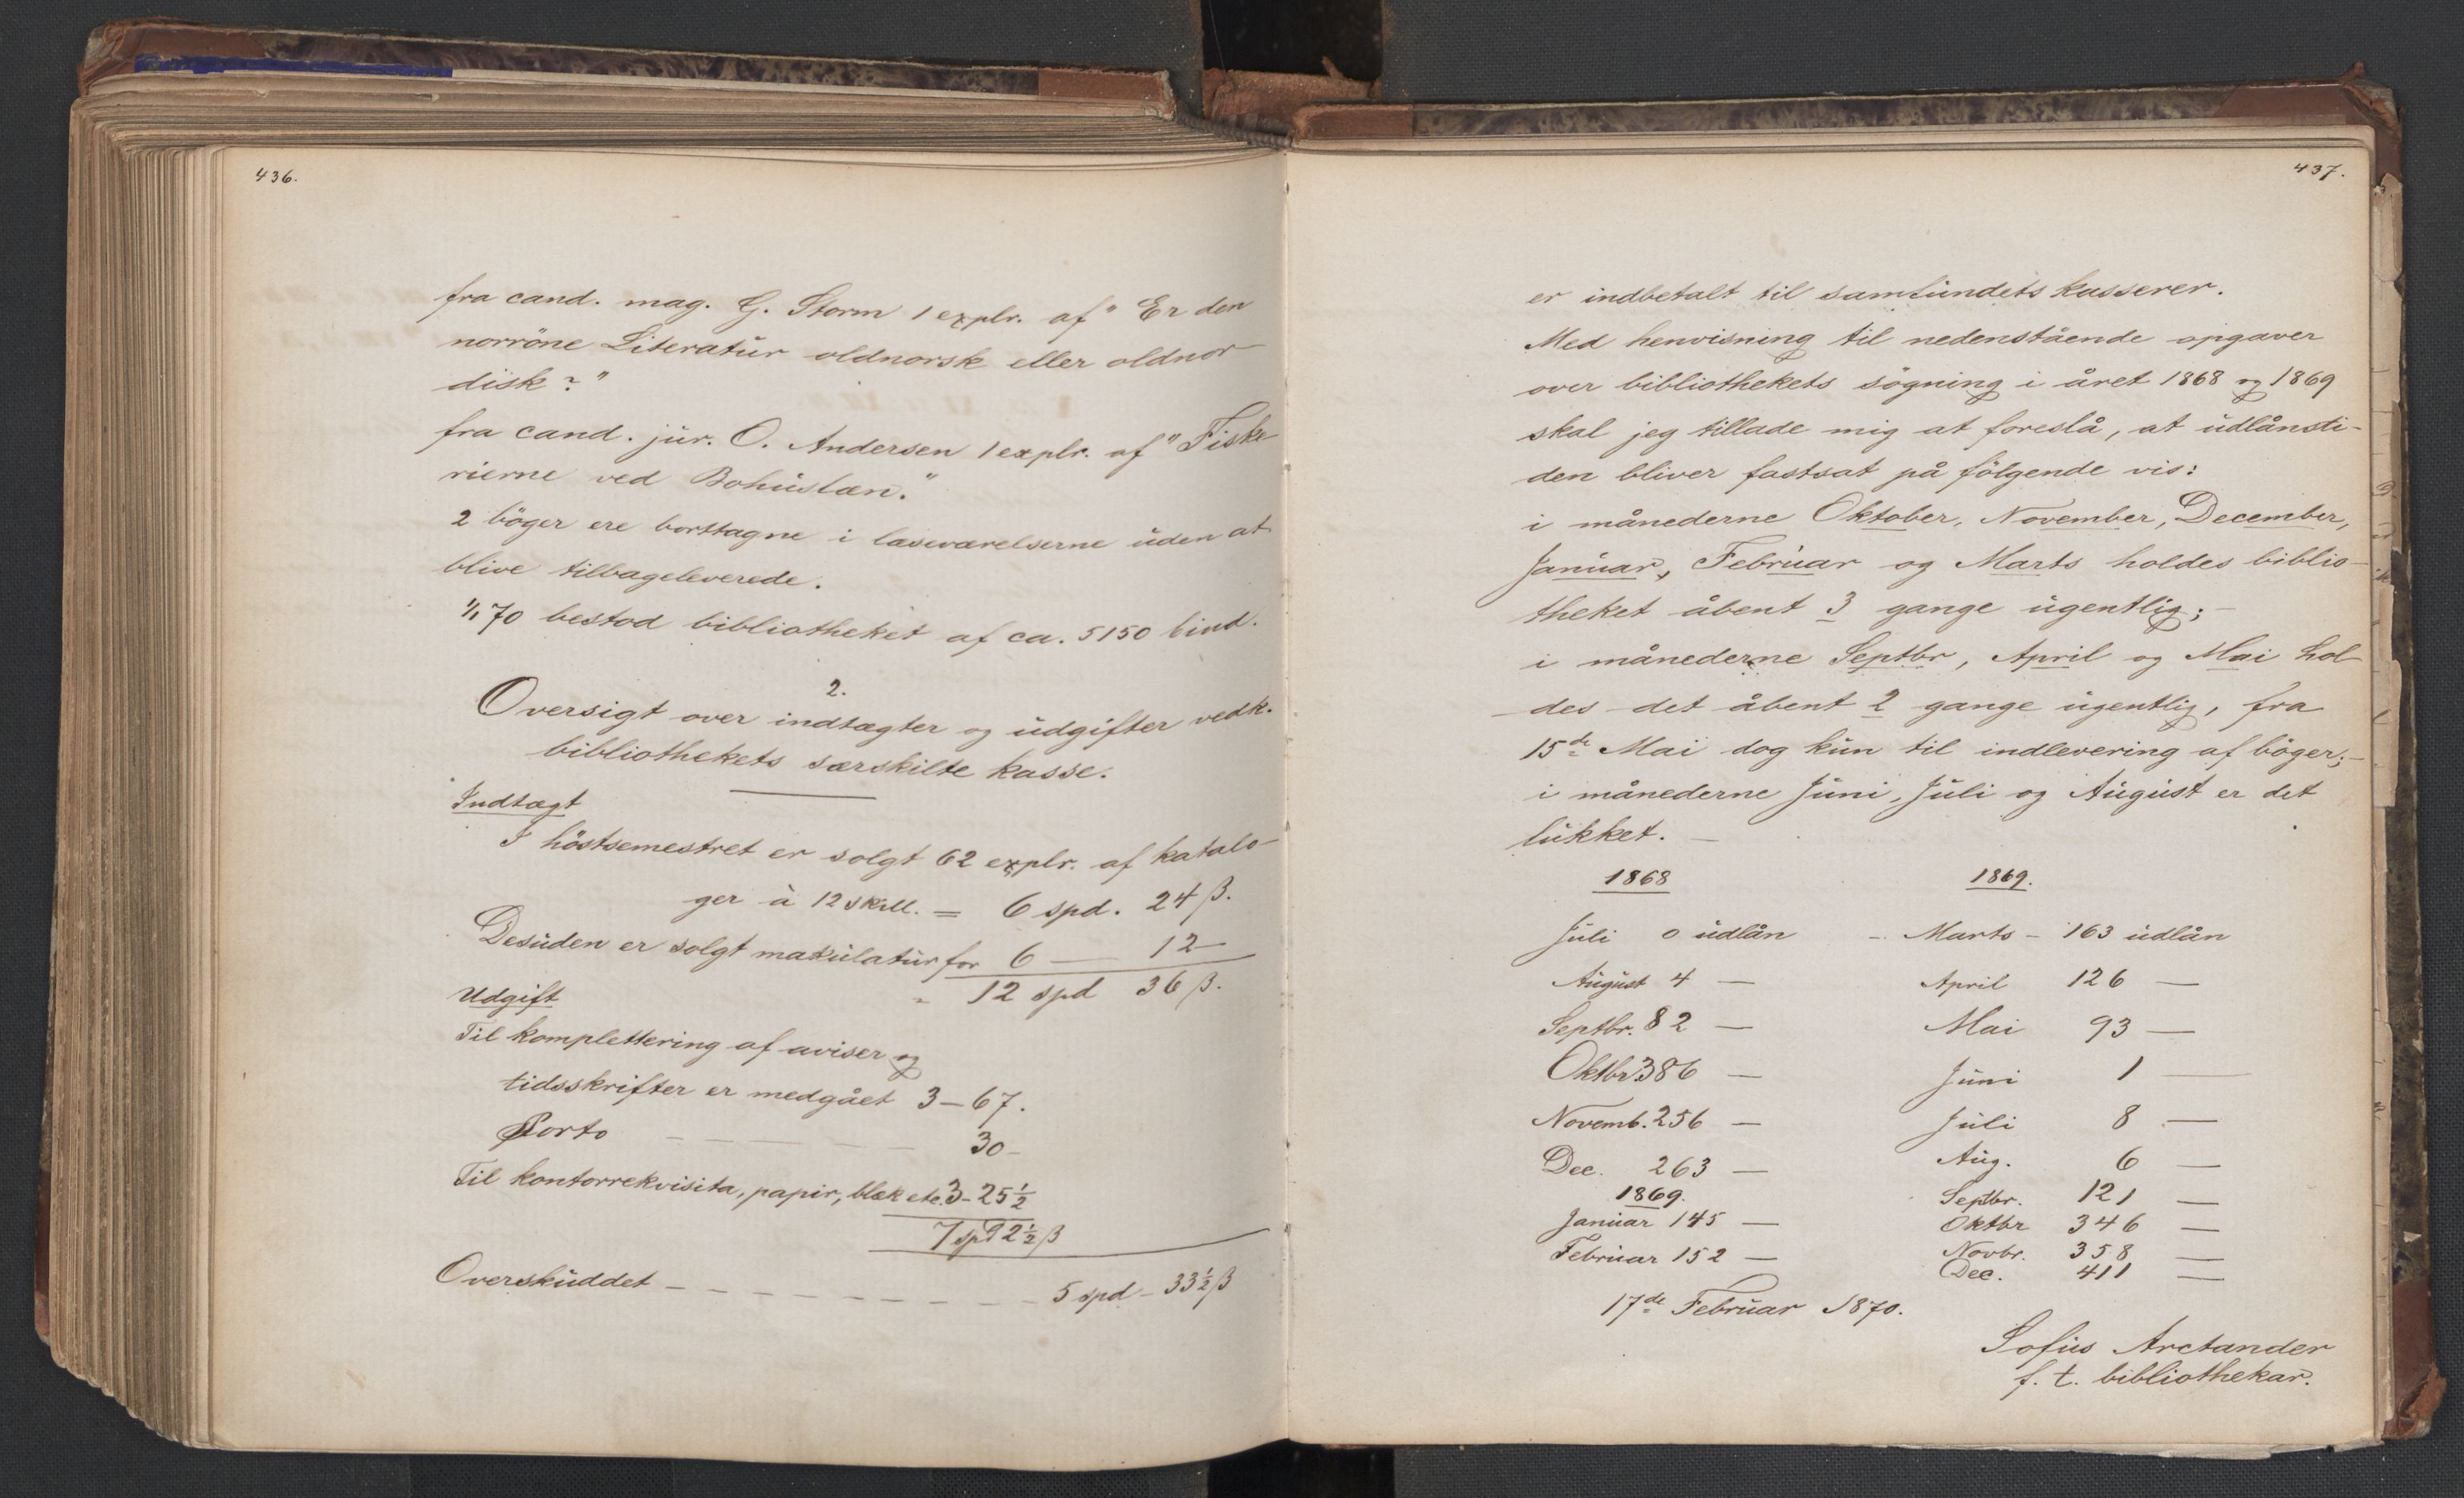 436.
fra cand. mag. G. Storm 1 explr. af "Er den
norröne Literatur oldnorsk eller oldnor-
disk?"
fra cand. jur. O. Andersen 1 explr. af "Fiske-
rierne ved Bohuslæn."
2 böger ere borttagne i læseværelserne uden at
blive tilbageleverede.
1/1 70 bestod bibliotheket af ca. 5150 bind.
2.
Oversigt over indtægter og udgifter vedk.
bibliothekets særskilte kasse.
Indtægt
I höstsemestret er solgt 62 explr. af katalo-
ger à 12 skill. = 6 spd. 24 β.
Desuden er solgt makulatur for 6 — 12 —
12 spd 36 β.
Udgift
Til komplettering af aviser og
tidsskrifter er medgået 3 – 67.
Porto — — — 30 –
Til kontorrekvisita, papir, blæk etc. 3 – 25 1/2
7 spd 2 1/2 β
Overskuddet – – – – – – – – 5 spd – 33 1/2 β
437.
er indbetalt til samfundets kasserer.
Med henvisning til nedenstående opgaver
over bibliothekets sögning i året 1868 og 1869
skal jeg tillade mig at foreslå, at udlånsti-
den bliver fastsat på fölgende vis:
i månederne Oktober, November, December,
Januar, Februar og Marts holdes biblio-
theket åbent 3 gange ugentlig; –
i månederne Septbr, April og Mai hol-
des det åbent 2 gange ugentlig, fra
15de Mai dog kun til indlevering af böger; –
i månederne Juni, Juli og August er det
lukket. –
1868 1869.
Juli 0 udlån – Marts – 163 udlån
August 4 — April 126 —
Septbr. 82 — Mai 93 —
Oktbr. 386 — Juni 1 —
Novemb. 256 — Juli 8 —
Dec. 263 — Aug. 6 —
1869. Septbr. 121 —
Januar 145 — Oktbr 346 —
Februar 152 — Novbr. 358 —
Dec. 411 —
17de Februar 1870.
Sofus Arctander
f. t. bibliothekar.